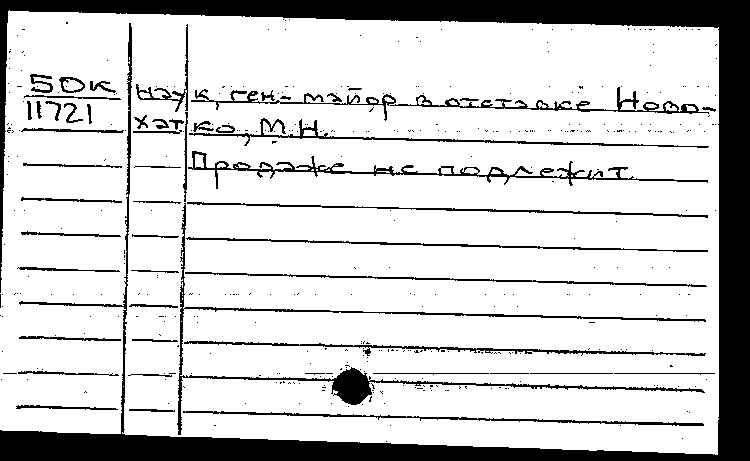 50к наук, ген-майор в отставке Ново-
11721 хатко, М.Н.
Продаже не подлежит